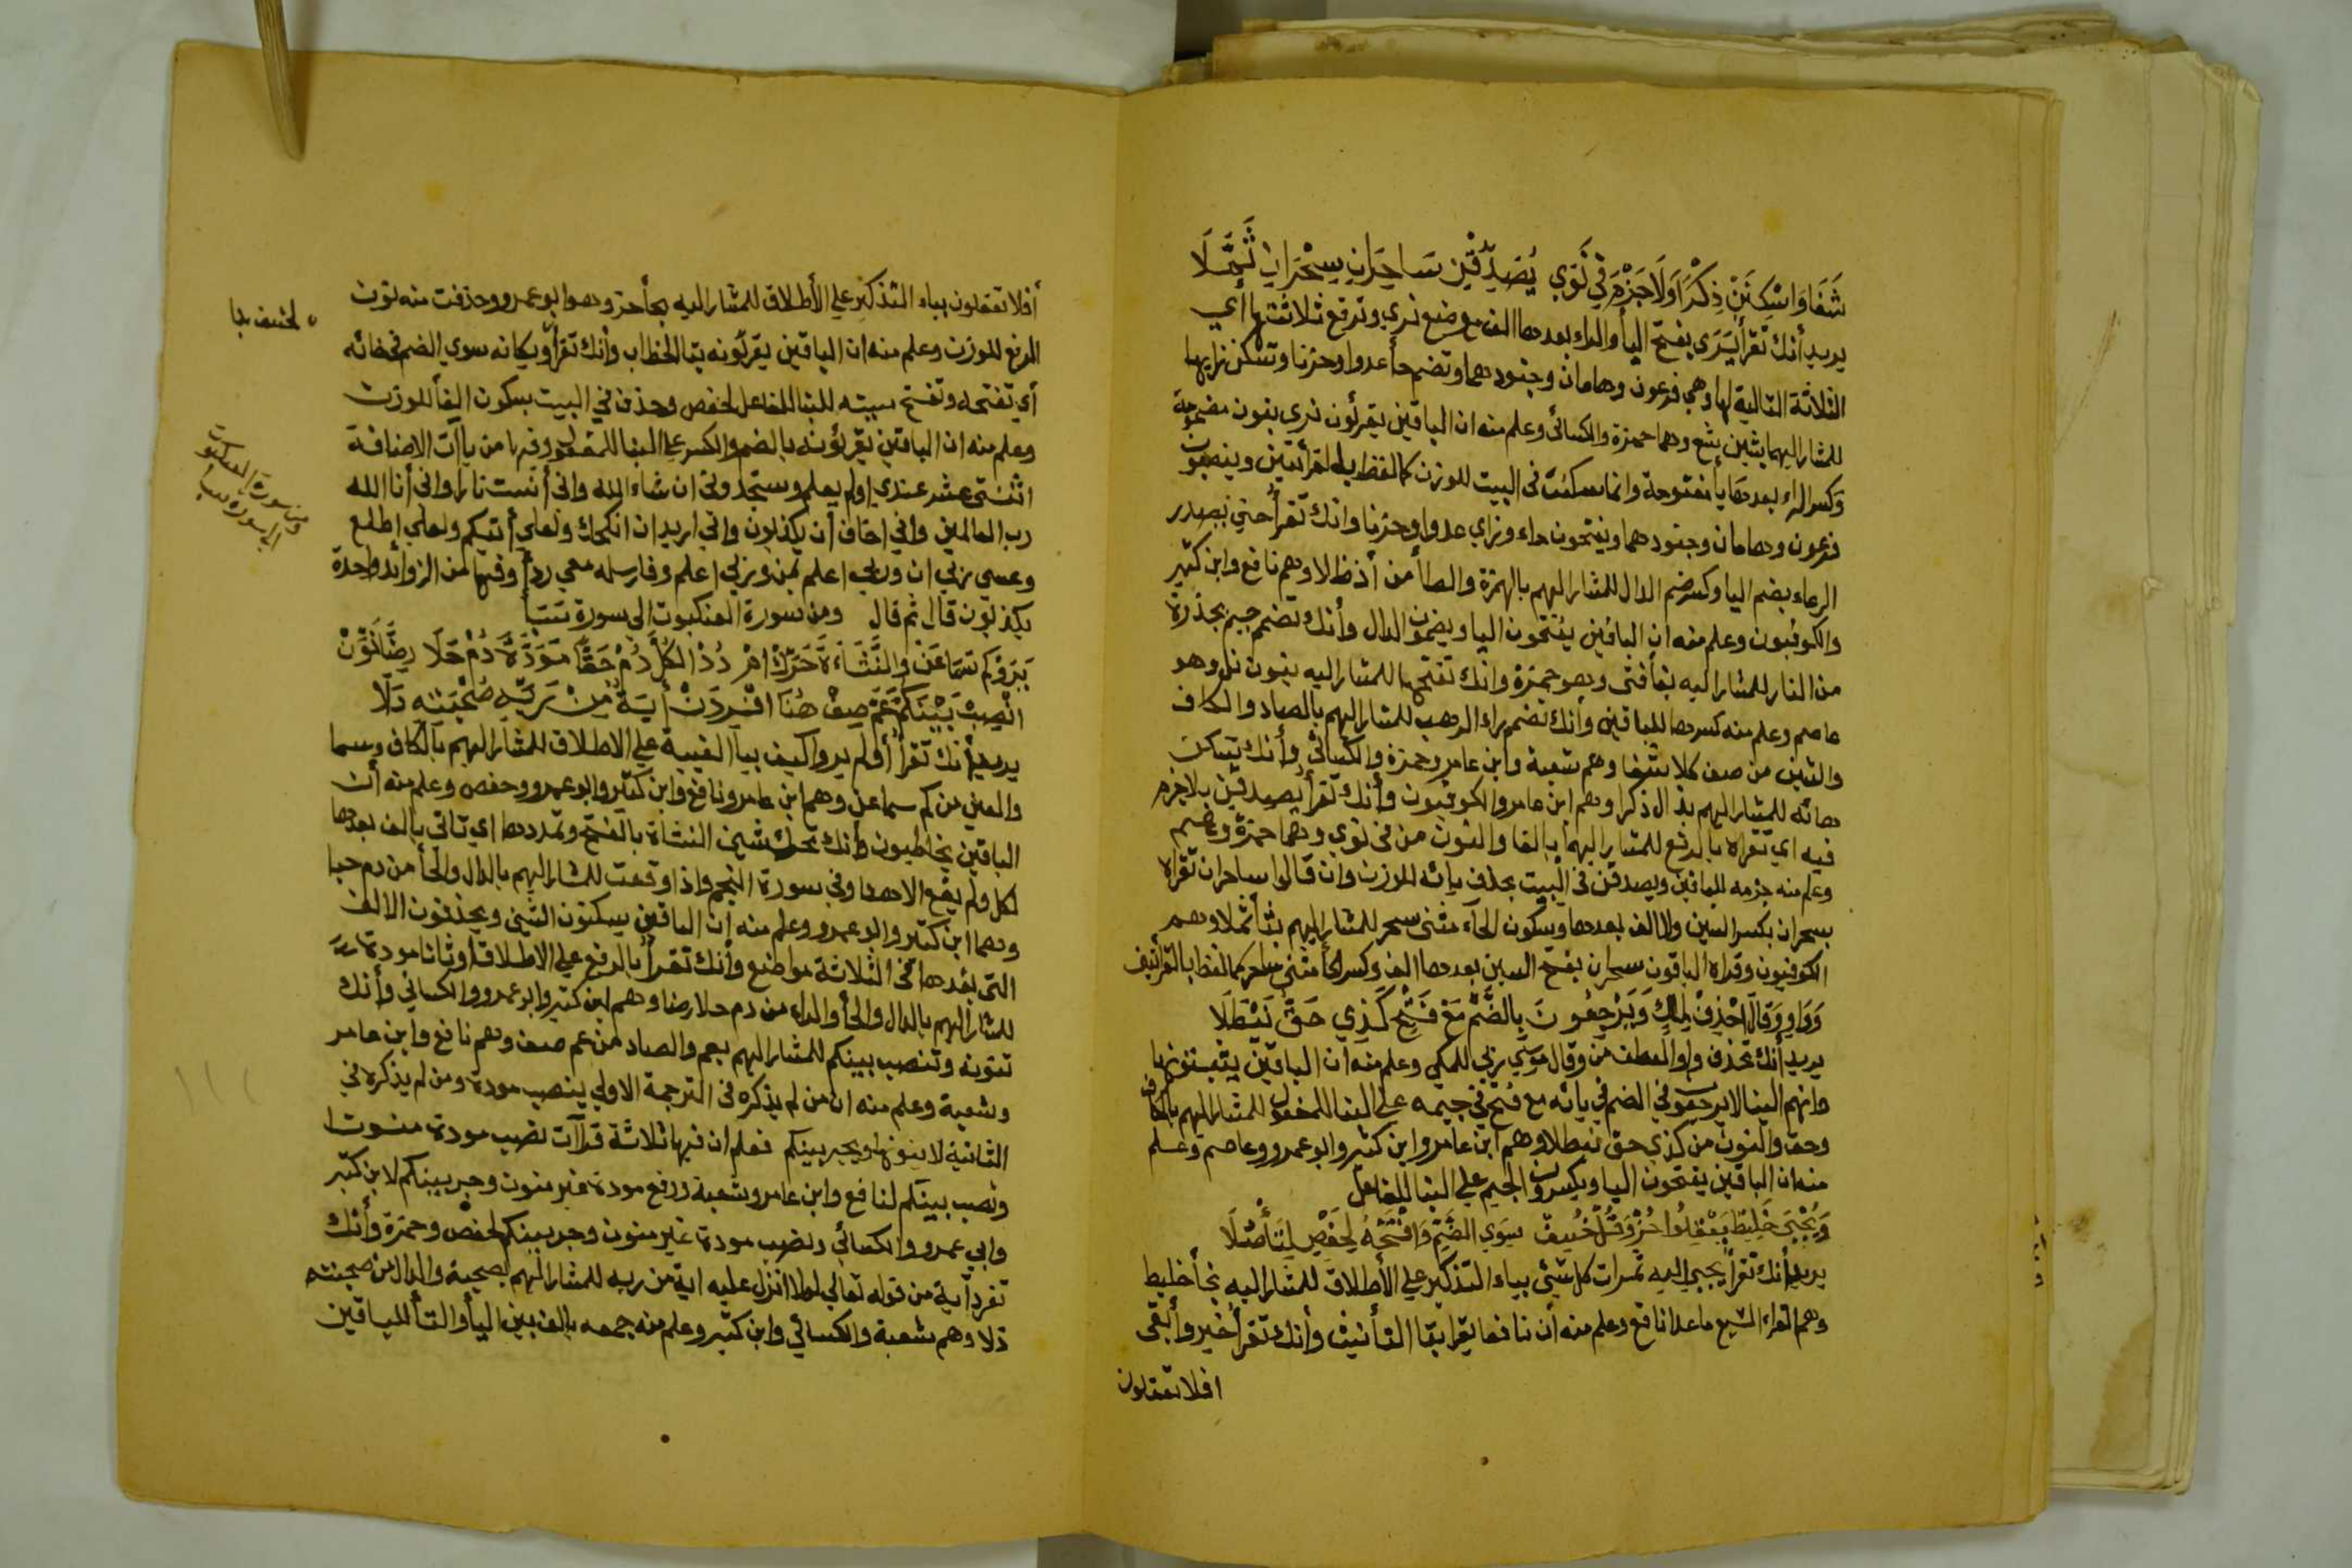 شَفَا وَاسْكِنَنْ ذِكْرًا وَلَا جَزْمَ فِي نَوَي يُصَدِّقْنِ سَاحِرَانِ سِحْرَانِ ثَمَّلَا
يريد أنك تقرأ يَرَى بفتح اليأ والراء بعدها الف موضع نري وترفع ثلاثتها أي
الثلاثة التالية لها وهي فرعون وهامان وجنودهما وتضم حأ عدوا وحزنا وتسكن زايها
للمشار اليهما بشين شع وهما حمزة والكسائي وعلم منه ان الباقين يقرئون نري بنون مضمومة
وكسر الراء بعدها يأ مفتوحة وانما سكنت في البيت للوزن كما لفظ بالقرأتين وينصبون
فرعون وهامان وجنودهما ويفتحون حاء وزاي عدوا وحزنا وانك تقرأ حتي يصدر
الرعاء بضم اليا وكسر ضم الدال للمشار اليهم بالهمزة والظأ من أذ ظلا وهم نافع وابن كثير
والكوفيون وعلم منه ان الباقين يفتحون اليا ويضمون الدال وأنك تضم جيم بجذوة
من النار للمشار اليه بفأ فتى وهو حمزة وانك تفتحها للمشار اليه بنون نل وهو
عاصم وعلم منه كسرها للباقين وأنك تضم راء الرهب للمشار اليهم بالصاد والكاف
والشين من صف كلا شفا وهم شعبة وابن عامر وحمزة والكسائي وأنك تسكن
هائه للمشار اليهم بذال ذكرا وهم ابن عامر والكوفيون وأنك تقرأ يصدقني بلا جزم
فيه اي تقراه بالرفع للمشار اليهما بالفا والنون من في نوي وهما حمزة وعاصم
وعلم منه جزمه للباقين ويصدقن في البيت بحذف يائه للوزن وان قالوا ساحران تقراه
سحران بكسر السين والالف بعدها وسكون الحآء مثنى سحر للمشار اليهم بثأ ثملا وهم
الكوفيون وقراه الباقون ساحران بفتح السين بعدها الف وكسر الحأ مثنى ساحر كما لفظ بالقرأتين
وَوَاوِ وَقَالَ احْذِفْ لِمَلِكٍ وَيَرْجِعُونَ بِالضَّمِّ مَعْ فَتْحٍ كَذِي حَقُّ نَيْطَلَا
يريد أنك تحذف واو العطف من وقال موسي ربي للمكي وعلم منه ان الباقين يثبتونها
وانهم الينا لا يرجعون في الضم في يائه مع فتح في جيمه علي البنا للمفعول للمشار اليهم بالكاف
وحق والنون من كذي حق نيطلا وهم ابن عامر وابن كثير وابو عمرو وعاصم وعلم
منه ان الباقين يفتحون اليا ويكسرون الجيم علي البنا للفاعل
وَيُجْبَى خَلِيطٌ يَعْقِلُوا حُزْ وَقُلْ خُسِفْ سِوَي الضَّمِّ وَافْتَحْهُ لِحَفْصٍ لِتَأْصُلَا
يريد أنك تقرأ يجبي اليه ثمرات كل شئ بياء التذكير علي الأطلاق للمشار اليه بخأ خليط
وهم القراء السبع ما عدا نافع وعلم منه أن نافعا يقرا بتا التأنيث وأنك تقرأ خير وأبقى
افلا تعقلون
أفلا تعقلون بياء التذكير علي الأطلاق للمشار اليه بحأ حز وهو ابو عمرو وحذفت منه نون
الرفع للوزن وعلم منه ان الباقين يقرئونه بتا الخطاب وأنك تقرأ ويكانه سوي الضم في خائه
لخسف بنا
أي تفتحه وتفتح سينه للبنا للفاعل لحفص وحذف في البيت بسكون الفأ للوزن
وعلم منه ان الباقين يقرئونه بالضم والكسر علي البنا للمفعول وفيها من ياآت الاضافة
اثنتى عشر عندي اولم يعلم وستجدوني ان شاء الله واني أنست نارا واني أنا الله
رب العالمين واني اخاف أن يكذبون واني اريد ان انكحك ولعلي أتيكم ولعلي اطلع
من سورة العنكبوت
الي سورة سبا
وعسي ربي ان وربي اعلم بمن وربي اعلم وفارسله معي ردأ وفيها من الزوائد واحدة
يكذبون قال ثم قال ومن سورة العنكبوت الي سورة سبأ
يَرَوْكَمْ سَمَا عَنْ وَالنَّشَاءَةَ حَرِّكْ امْدُدْ الكُلَّ دُمْ حَقًّا مَوَدَّةَ دُمْ حَلَا رِضًا نَوِّنْ
انْصِبْ بَيْنَكُمْ عَمَّ صِفْ هُنَا افْرِدَنْ أيَةٌ مِنْ رَبِّهِ صُحْبَتُهِ دَلَا
يريد أنك تقرأ أولم يروا كيف بيأ الغيبة علي الاطلاق للمشار اليهم بالكاف وسما
والعين من كم سما عن وهم ابن عامر ونافع وابن كثير وابو عمرو وحفص وعلم منه أن
الباقين يخاطبون وأنك تحرك شين النشاة بالفتح وتمددها اي تاتي بالف بعدها
لكل ولم يقع الا هنا وفي سورة النجم واذا وقعت للمشار اليهم بالدال والحأ من دم حبا
وهما ابن كثير وابو عمرو وعلم منه ان الباقين يسكنون الشين ويحذفون الالف
التي بعدها في الثلاثة مواضع وأنك تقرأ بالرفع علي الاطلاق اوثانا مودة
للمشار اليهم بالدال والحأ والراء من دم حلا رضا وهم ابن كثير وابو عمرو والكسائي وأنك
تنونه وتنصب بينكم للمشار اليهم بعم والصاد من عم صف وهم نافع وابن عامر
وشعبة وعلم منه ان من لم يذكره في الترجمة الاولي ينصب مودة ومن لم يذكره في
الثانية لا ينونها ويجر بينكم فعلم ان فيها ثلاثة قرآات نصب مودة منونا
ونصب بينكم لنافع وابن عامر وشعبة ورفع مودة غير منون وجر بينكم لابن كثير
وابي عمرو والكسائي ونصب مودة غير منون وجر بينكم لحفص وحمزة وأنك
تفرد آية من قوله تعالي لولا انزل عليه اية من ربه للمشار اليهم بصحبة والدال من صحبته
دلا وهم شعبة والكسائي وابن كثير وعلم منه جمعه بالف بين اليأ والتأ للباقين